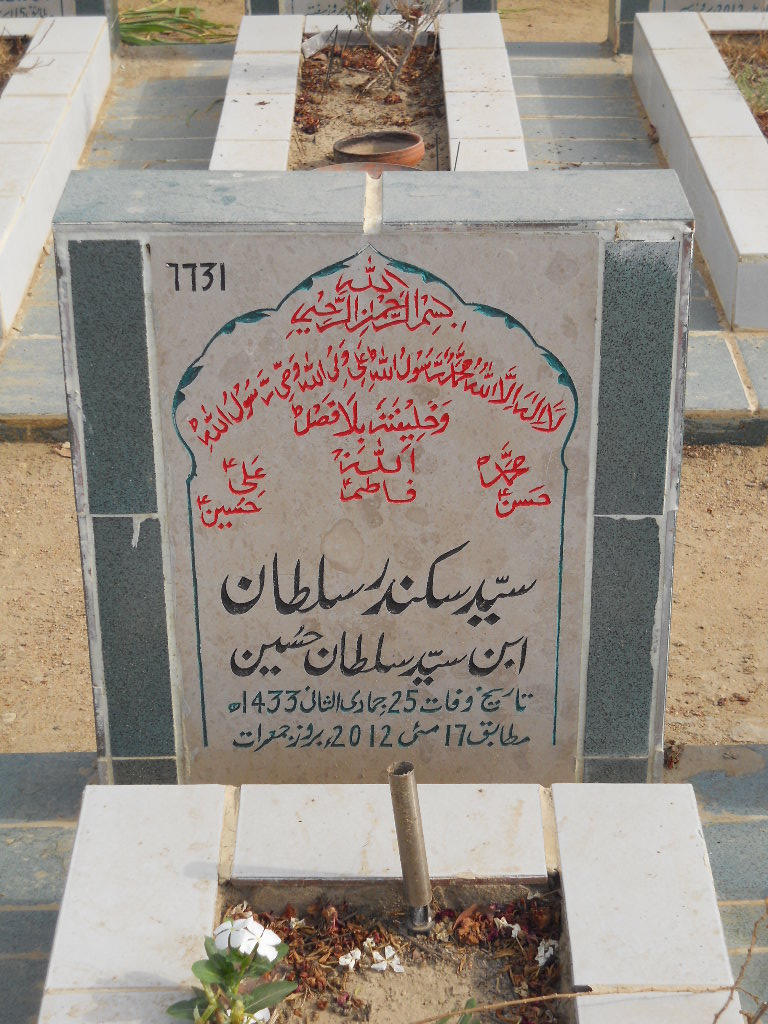 7731
الله
بسم الرحمن الرحيم
لا اله الا الله محمد رسول الله علی ولی الله وصی رسول الله
وخلیفته بلا فصل
محمد الله علی
حسن فاطمہ حسین
سیّد سکندر سلطان
ابن سیّد سلطان حُسین
تاریخ وفات 25 جمادی الثانی 1433ھ
مطابق 17 مئی 2012ء بروز جمعرات